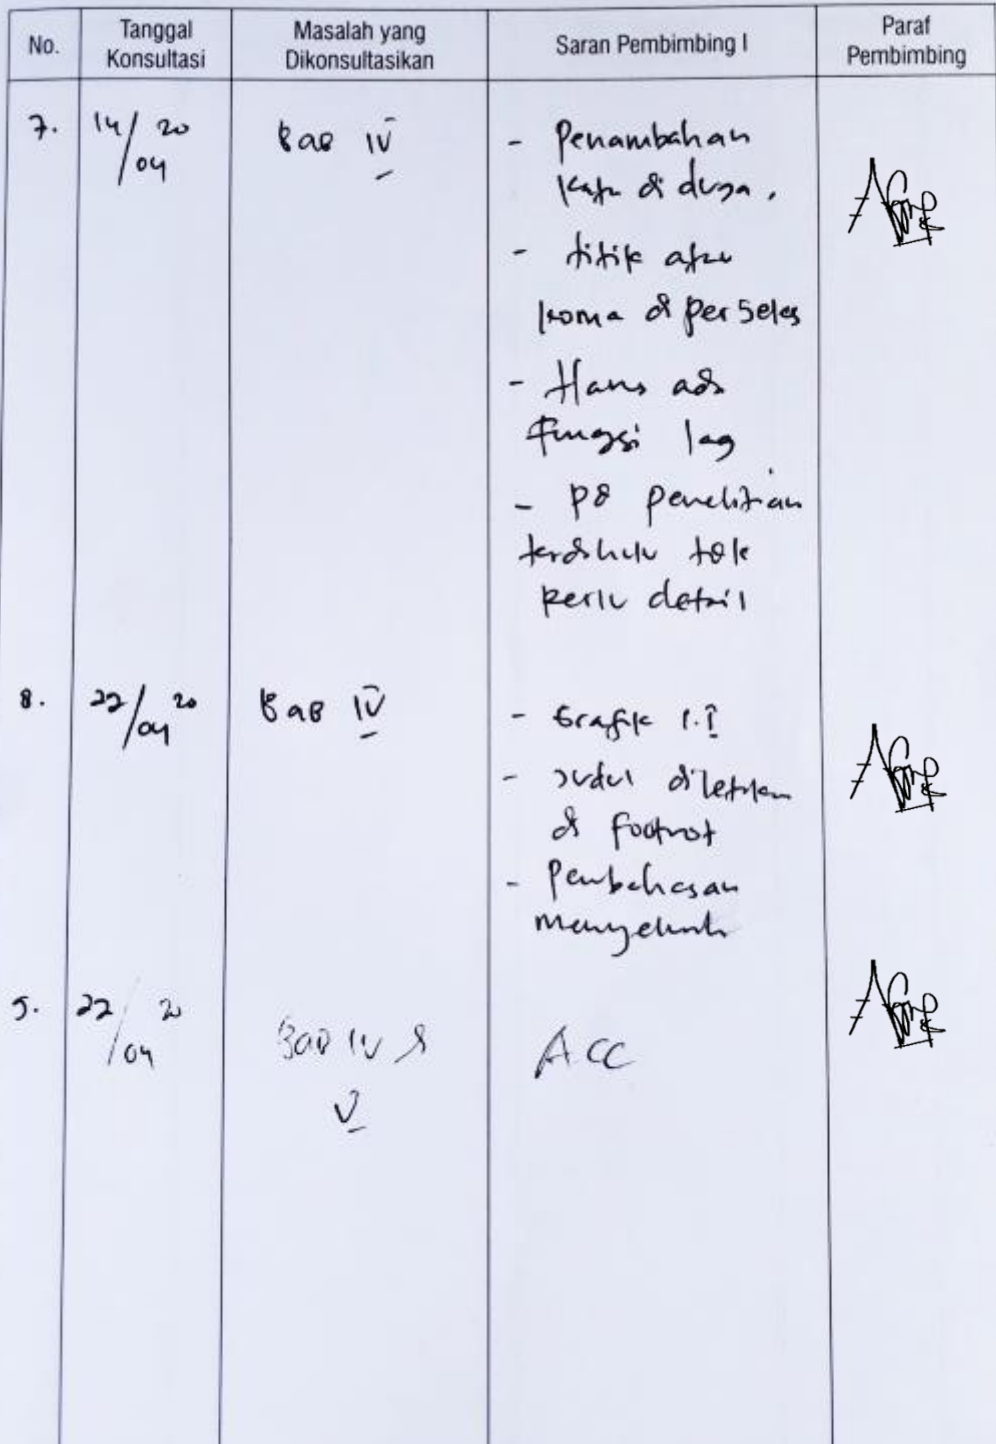 No.
Tanggal
Konsultasi
Masalah yang
Dikonsultasikan
Saran Pembimbing I
Paraf
Pembimbing
7.
14/04 20
Bab IV
- Penambahan
kata di duga.
- titik atau
koma di perjelas
- Harus ada
Fungsi lag
- pd penelitian
terdahulu tdk
perlu detail
8.
22/04 20
Bab IV
- Grafik 1.1
- Judul diletakan
di footnot
- Pembahasan
menyeluruh
9.
22/04 20
Bab IV &
V
ACC